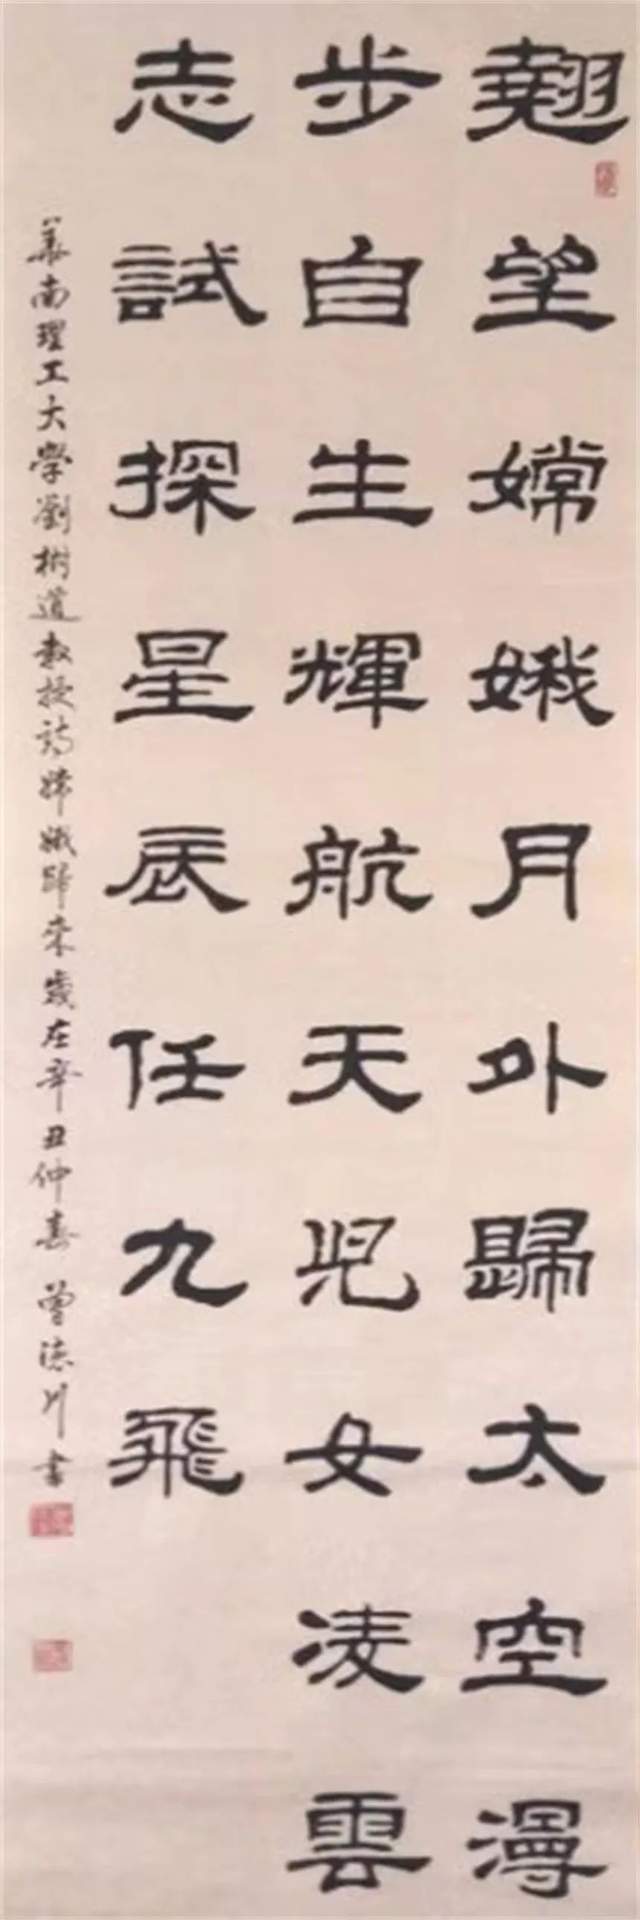 翹望嫦娥月外歸太空漫
步自生輝航天兒女凌雲
志試探星辰任九飛
華南理工大學劉樹道教授詩嫦娥歸來歲在辛丑仲春 曾德川書